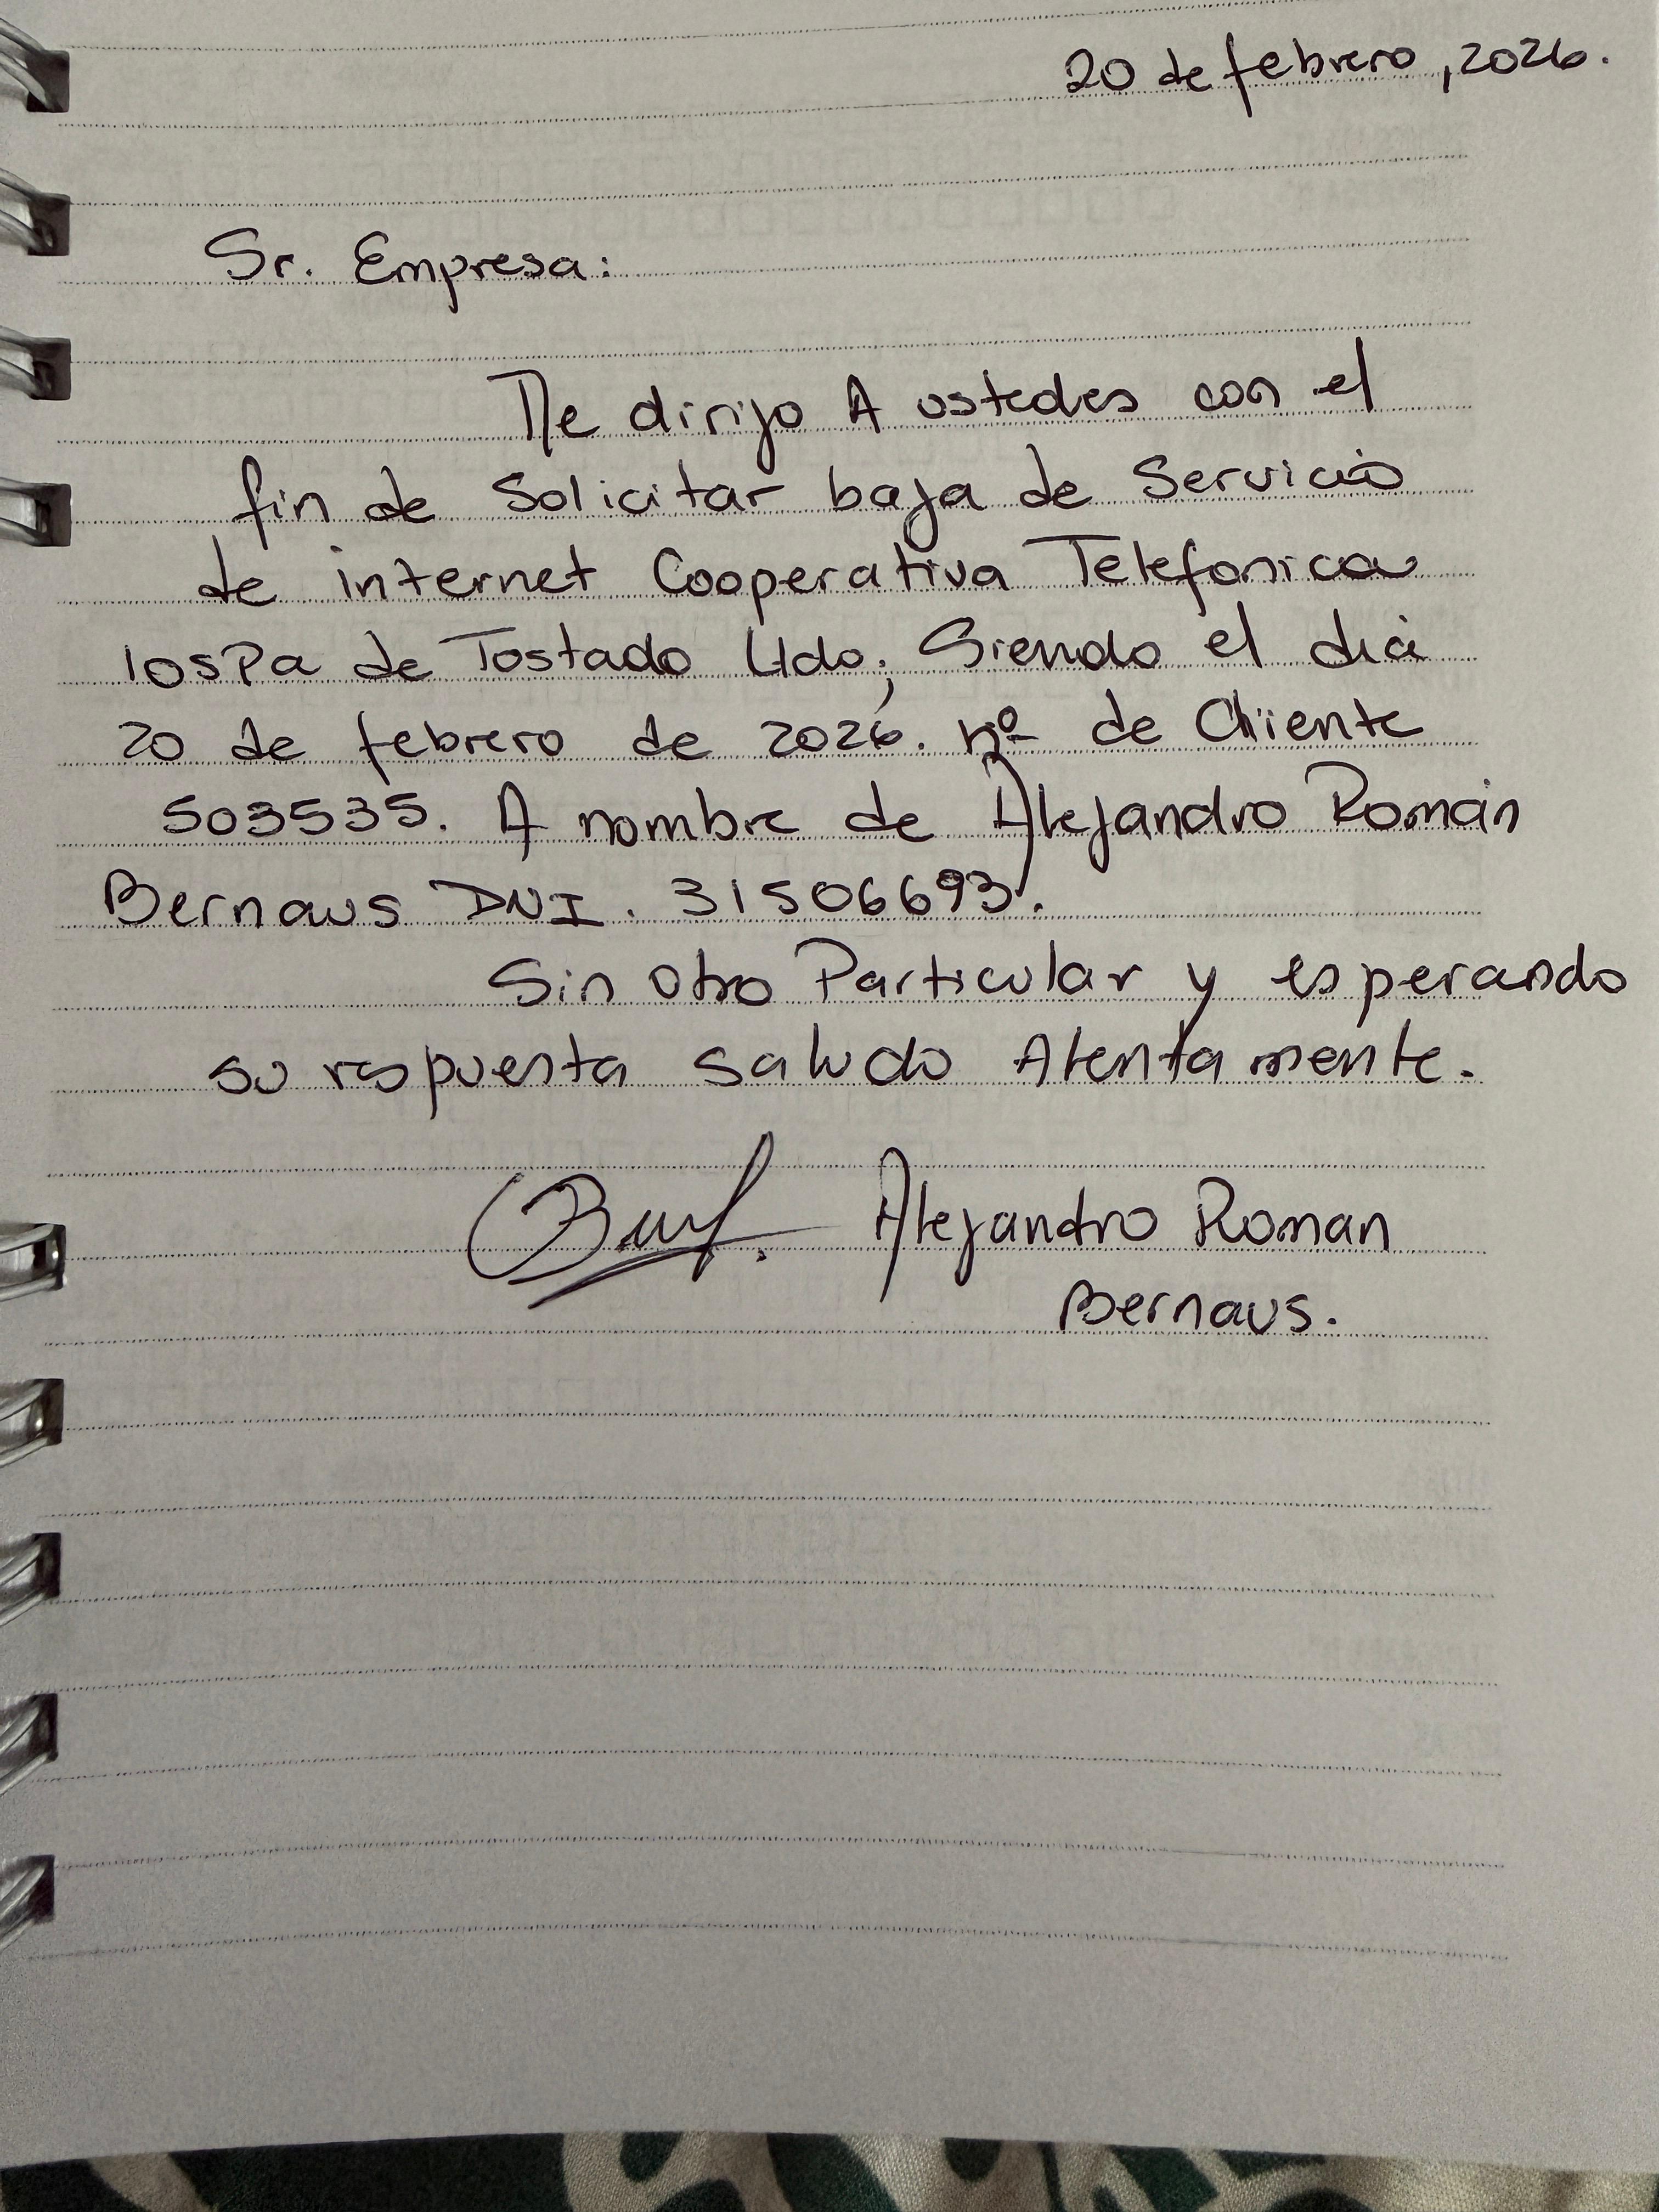 20 de febrero, 2026.
Sr. Empresa:
Me dirijo A ustedes con el
fin de Solicitar baja de Servicio
de internet Cooperativa Telefonica
de Tostado Ltdo; Siendo el dia
20 de febrero de 2026. nº de Cliente
503535. A nombre de Alejandro Román
Bernaus DNI. 31506693.
Sin otro Particular y esperando
su respuesta saludo Atentamente.
Alejandro Roman
Bernaus.